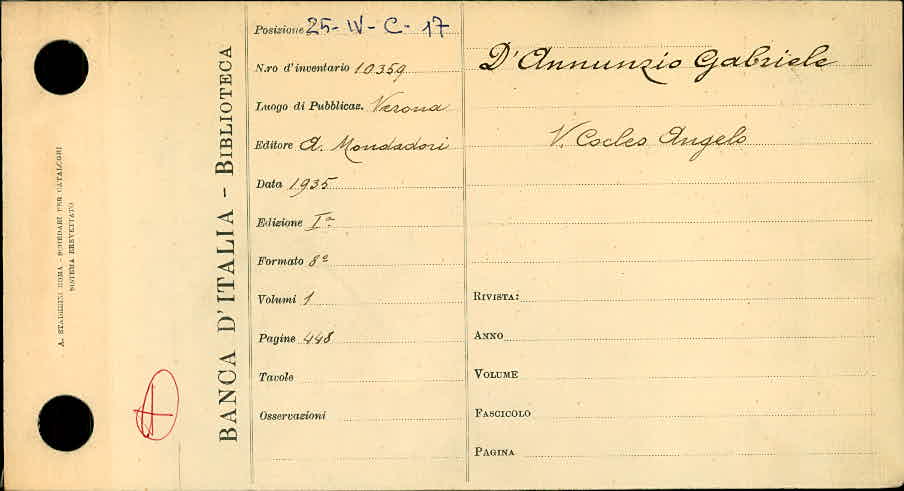 A. STADERINI ROMA - SCHEDARI PER CATALOGHI
SISTEMA BREVETTATO
BANCA D'ITALIA - BIBLIOTECA
Posizione 25-IV-C-17
N.ro d'inventario 10359
Luogo di Pubblicaz. Verona
Editore A. Mondadori
Data 1935
Edizione Iª
Formato 8º
Volumi 1
Pagine 448
Tavole
Osservazioni
D'Annunzio Gabriele
V. Cocles Angelo
RIVISTA:
ANNO
VOLUME
FASCICOLO
PAGINA